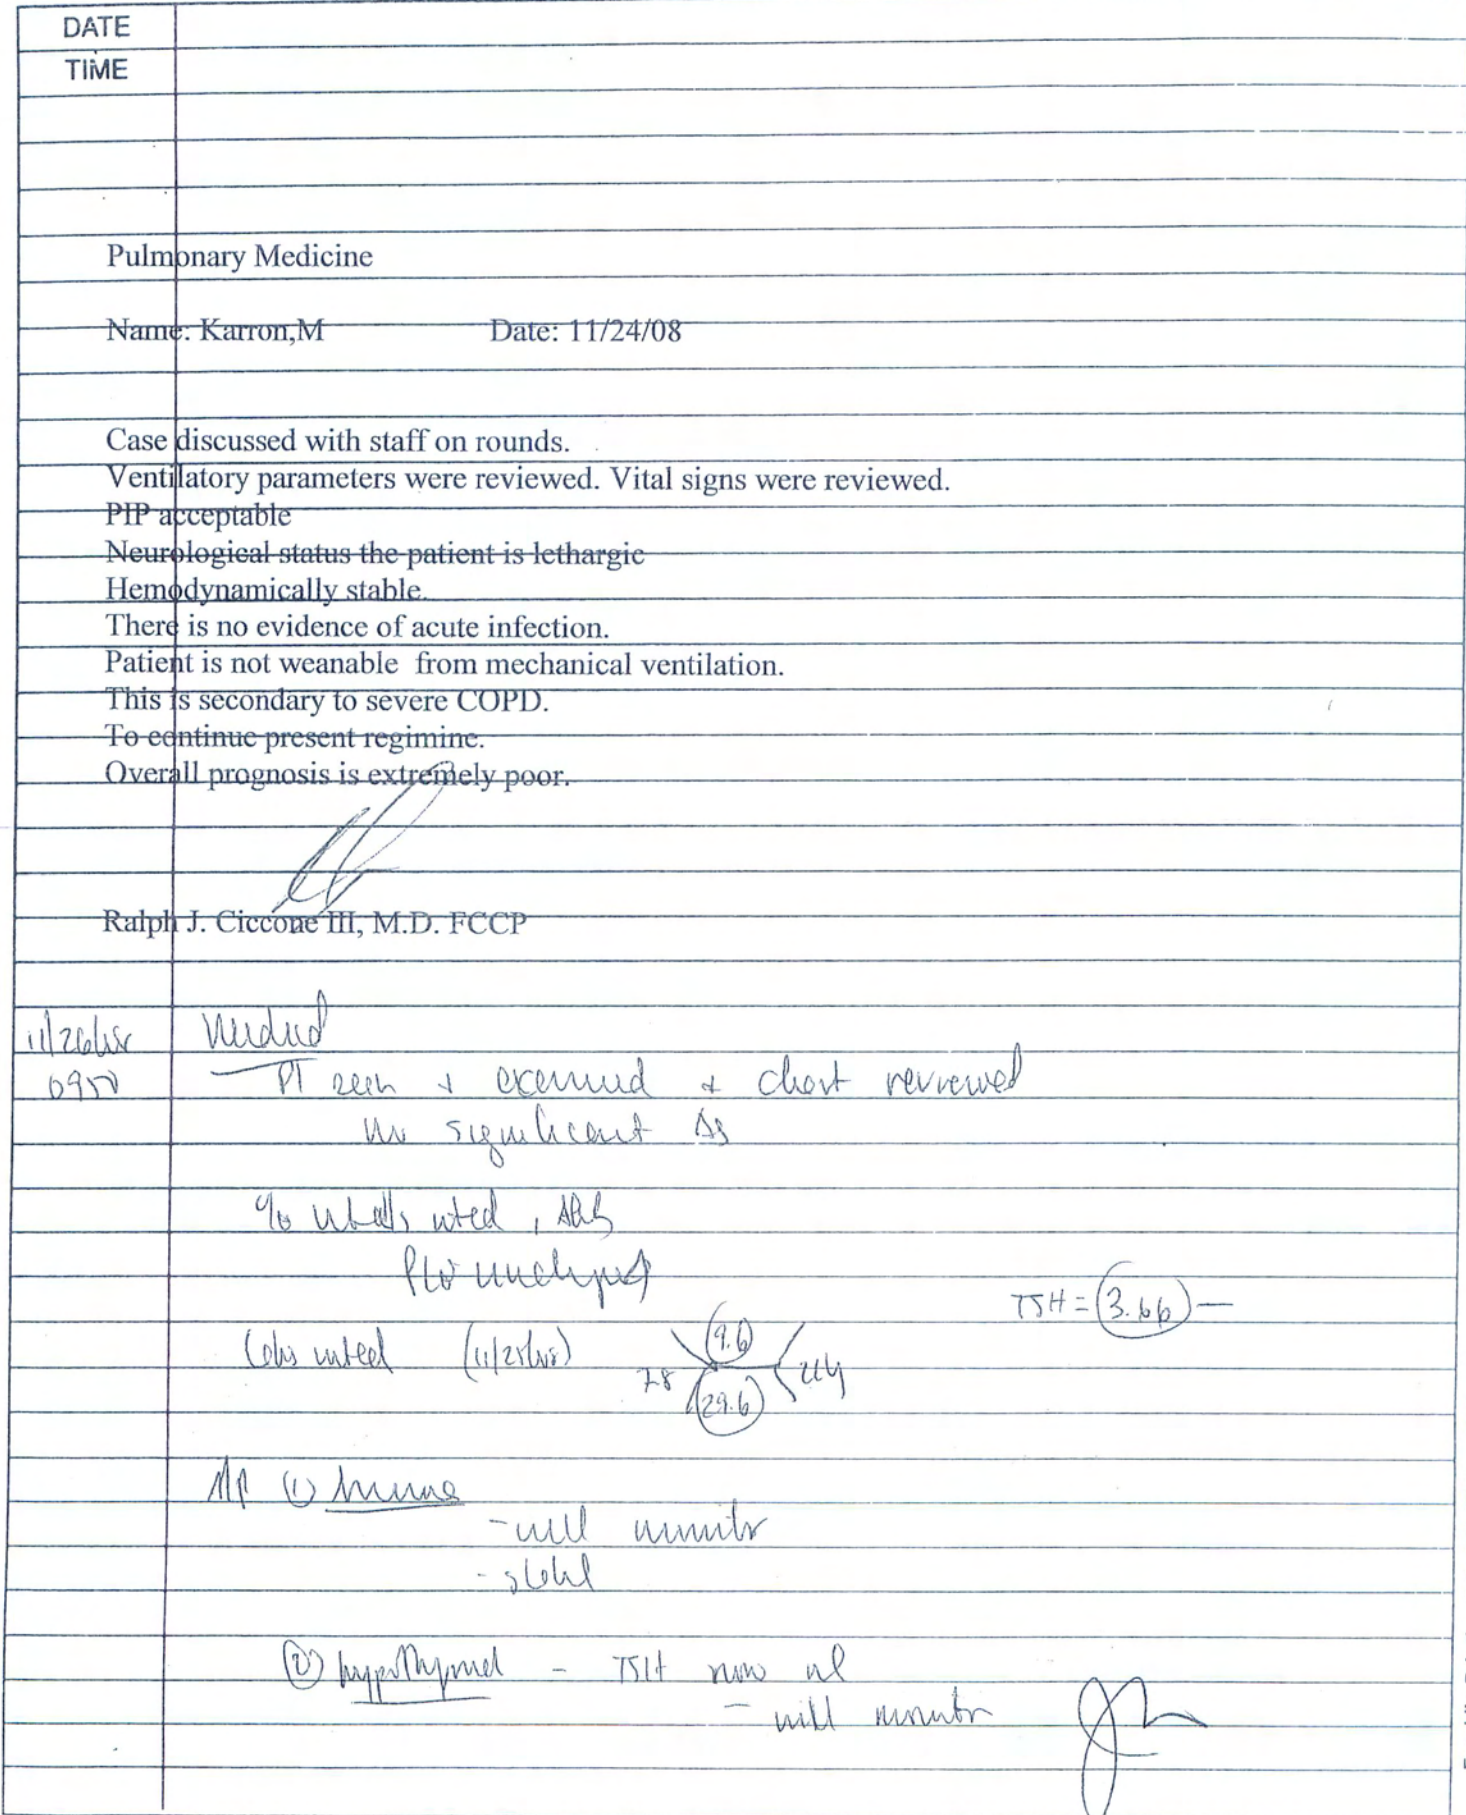 DATE
TIME
Pulmonary Medicine
Name: Karron,M Date: 11/24/08
Case discussed with staff on rounds.
Ventilatory parameters were reviewed. Vital signs were reviewed.
PIP acceptable
Neurological status the patient is lethargic
Hemodynamically stable.
There is no evidence of acute infection.
Patient is not weanable from mechanical ventilation.
This is secondary to severe COPD.
To continue present regimine.
Overall prognosis is extremely poor.
Ralph J. Ciccone III, M.D. FCCP
11/26/08 Medical
PT seen + examined + chart reviewed
no significant Δs
noted,
PE unchanged
TSH = 3.66 —
Labs noted 7.8 9.6 29.6
A/P ①
- will monitor
- stable
② hypothyroid - TSH now nl
- will monitor